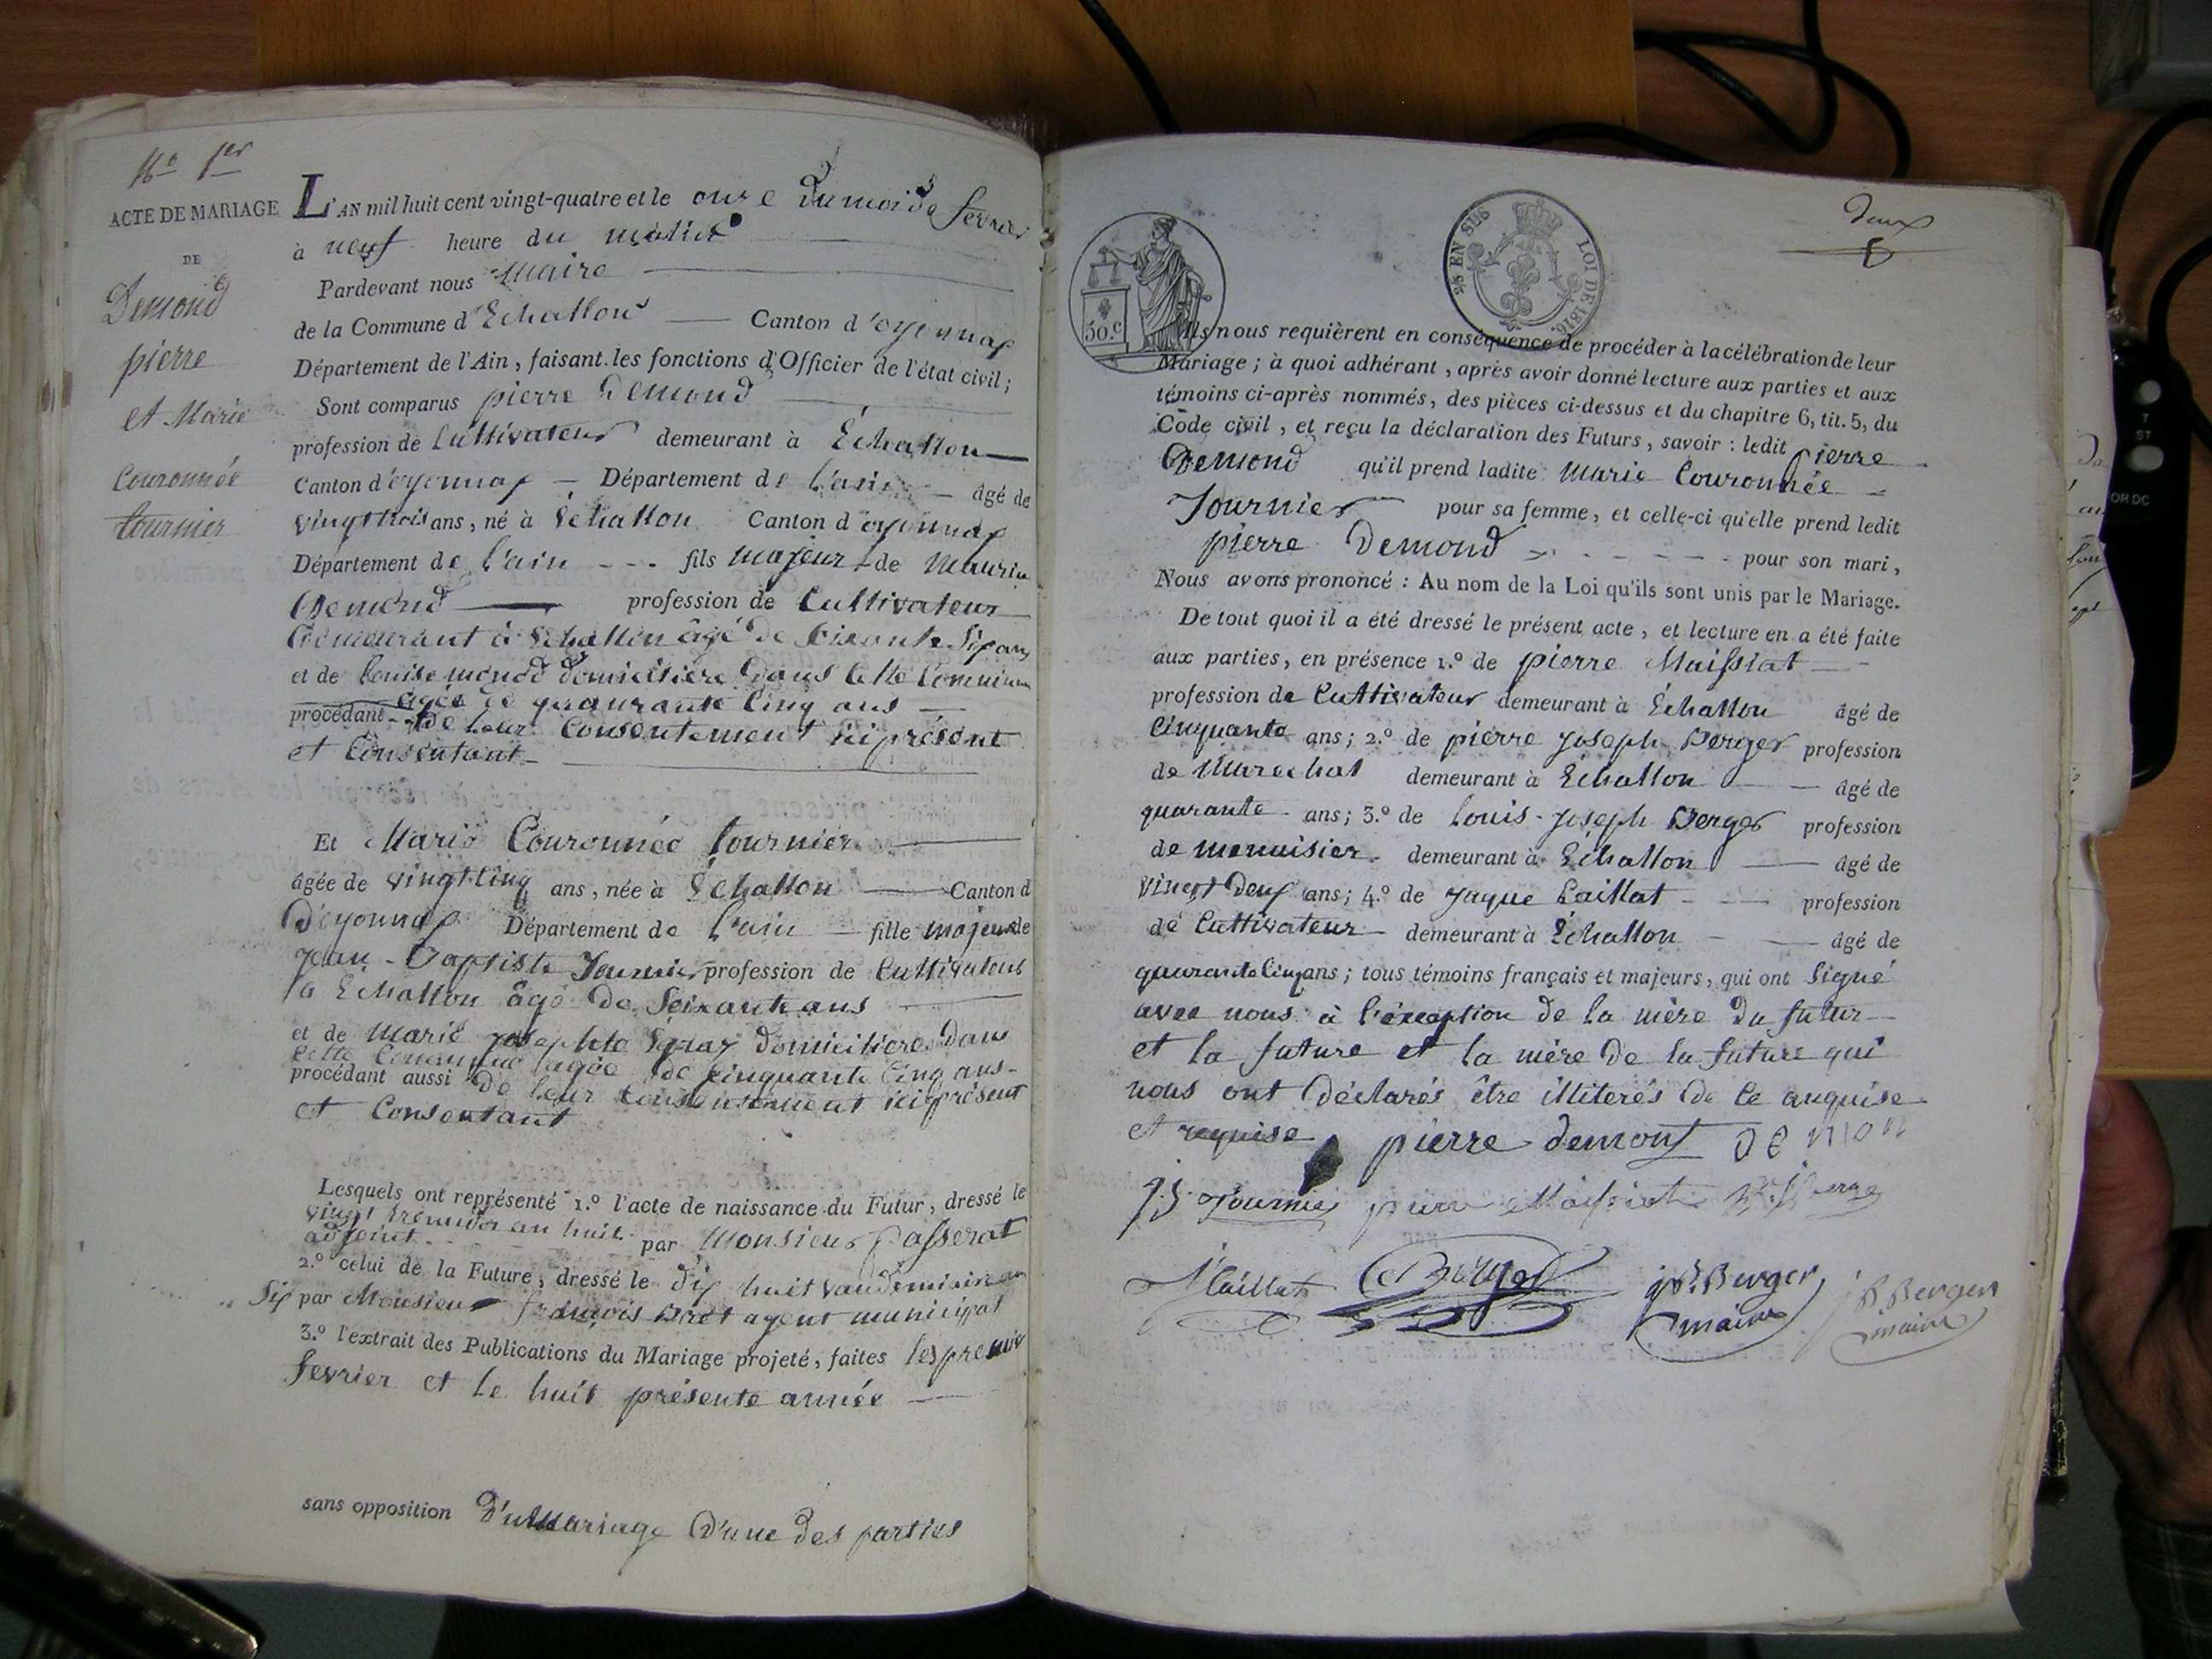 No 1er
ACTE DE MARIAGE
DE
Demond
pierre
et Marie
Couronnée
tournier
L'AN mil huit cent vingt-quatre et le onze du moi de fevrier
à neuf heure du matin
Pardevant nous Maire
de la Commune d'Echallon Canton d'oyonnax
Département de l'Ain, faisant les fonctions d'Officier de l'état civil;
Sont comparus pierre Demond
profession de Cultivateur demeurant à Échallon
Canton d'oyonnax Département de l'ain âgé de
vingt trois ans, né à Échallon Canton d'oyonnax
Département de l'ain fils majeur de Maurin
Demond profession de Cultivateur
demeurant à Echallon âgé de soixante Six ans
et de Louise monod domiciliere dans cette Commune
agée de quaurante Cinq ans
procédant de leur Consentement ici présent
et Consentant
Et Marie Couronnée tournier
âgée de vingt Cinq ans, née à Échallon Canton d
D'oyonnax Département de l'ain fille majeur de
jean-Baptiste Tournier profession de Cultivateur
a Echallon âgé de Soixante ans
et de Marie josephte domiciliere dans
cette Commune agée de cinquante Cinq ans
procédant aussi de leur consentement ici présent
et Consentant
Lesquels ont représenté 1.º l'acte de naissance du Futur, dressé le
vingt an huit par Monsieur Passerat
adjoint
2.º celui de la Future, dressé le dix huit vandemiaire an
Six par Monsieur françois agent municipal
3.º l'extrait des Publications du Mariage projeté, faites les premier
fevrier et le huit présente année
sans opposition d'u Mariage D'une des parties
50.c
25 EN SUS
LOI DE 1816.
Deux
Ils nous requièrent en conséquence de procéder à la célébration de leur
Mariage; à quoi adhérant, après avoir donné lecture aux parties et aux
témoins ci-après nommés, des pièces ci-dessus et du chapitre 6, tit. 5, du
Code civil, et reçu la déclaration des Futurs, savoir: ledit Pierre
Demond qu'il prend ladite Marie Couronnée
Tournier pour sa femme, et celle-ci qu'elle prend ledit
pierre Demond pour son mari,
Nous avons prononcé: Au nom de la Loi qu'ils sont unis par le Mariage.
De tout quoi il a été dressé le présent acte, et lecture en a été faite
aux parties, en présence 1.º de pierre Maissiat
profession de Cultivateur demeurant à Échallon âgé de
Cinquante ans; 2.º de pierre joseph Berger profession
de Marechal demeurant à Échallon âgé de
quarante ans; 3.º de Louis-joseph Berger profession
de menuisier demeurant à Échallon âgé de
vingt Deux ans; 4.º de jaque Caillat profession
de Cultivateur demeurant à Échallon âgé de
quarante Cinq ans; tous témoins français et majeurs, qui ont Signé
avec nous à l'exception de la mère du futur
et la future et la mère de la future qui
nous ont déclarés être illiterés de ce anquise
et requise pierre demont DEMON
j.B. Tournier pierre Maissiat Berge
j Caillat Berger j.B. Berger
maire
j B Berger
maire